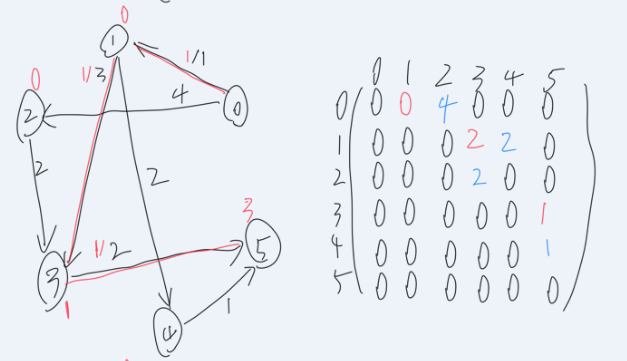 0
1
1/1
0
1/3
4
0
2
2
2
3
1/2
5
3
1
4
1
0 1 2 3 4 5
0 0 0 4 0 0 0
1 0 0 0 2 2 0
2 0 0 0 2 0 0
3 0 0 0 0 0 1
4 0 0 0 0 0 1
5 0 0 0 0 0 0